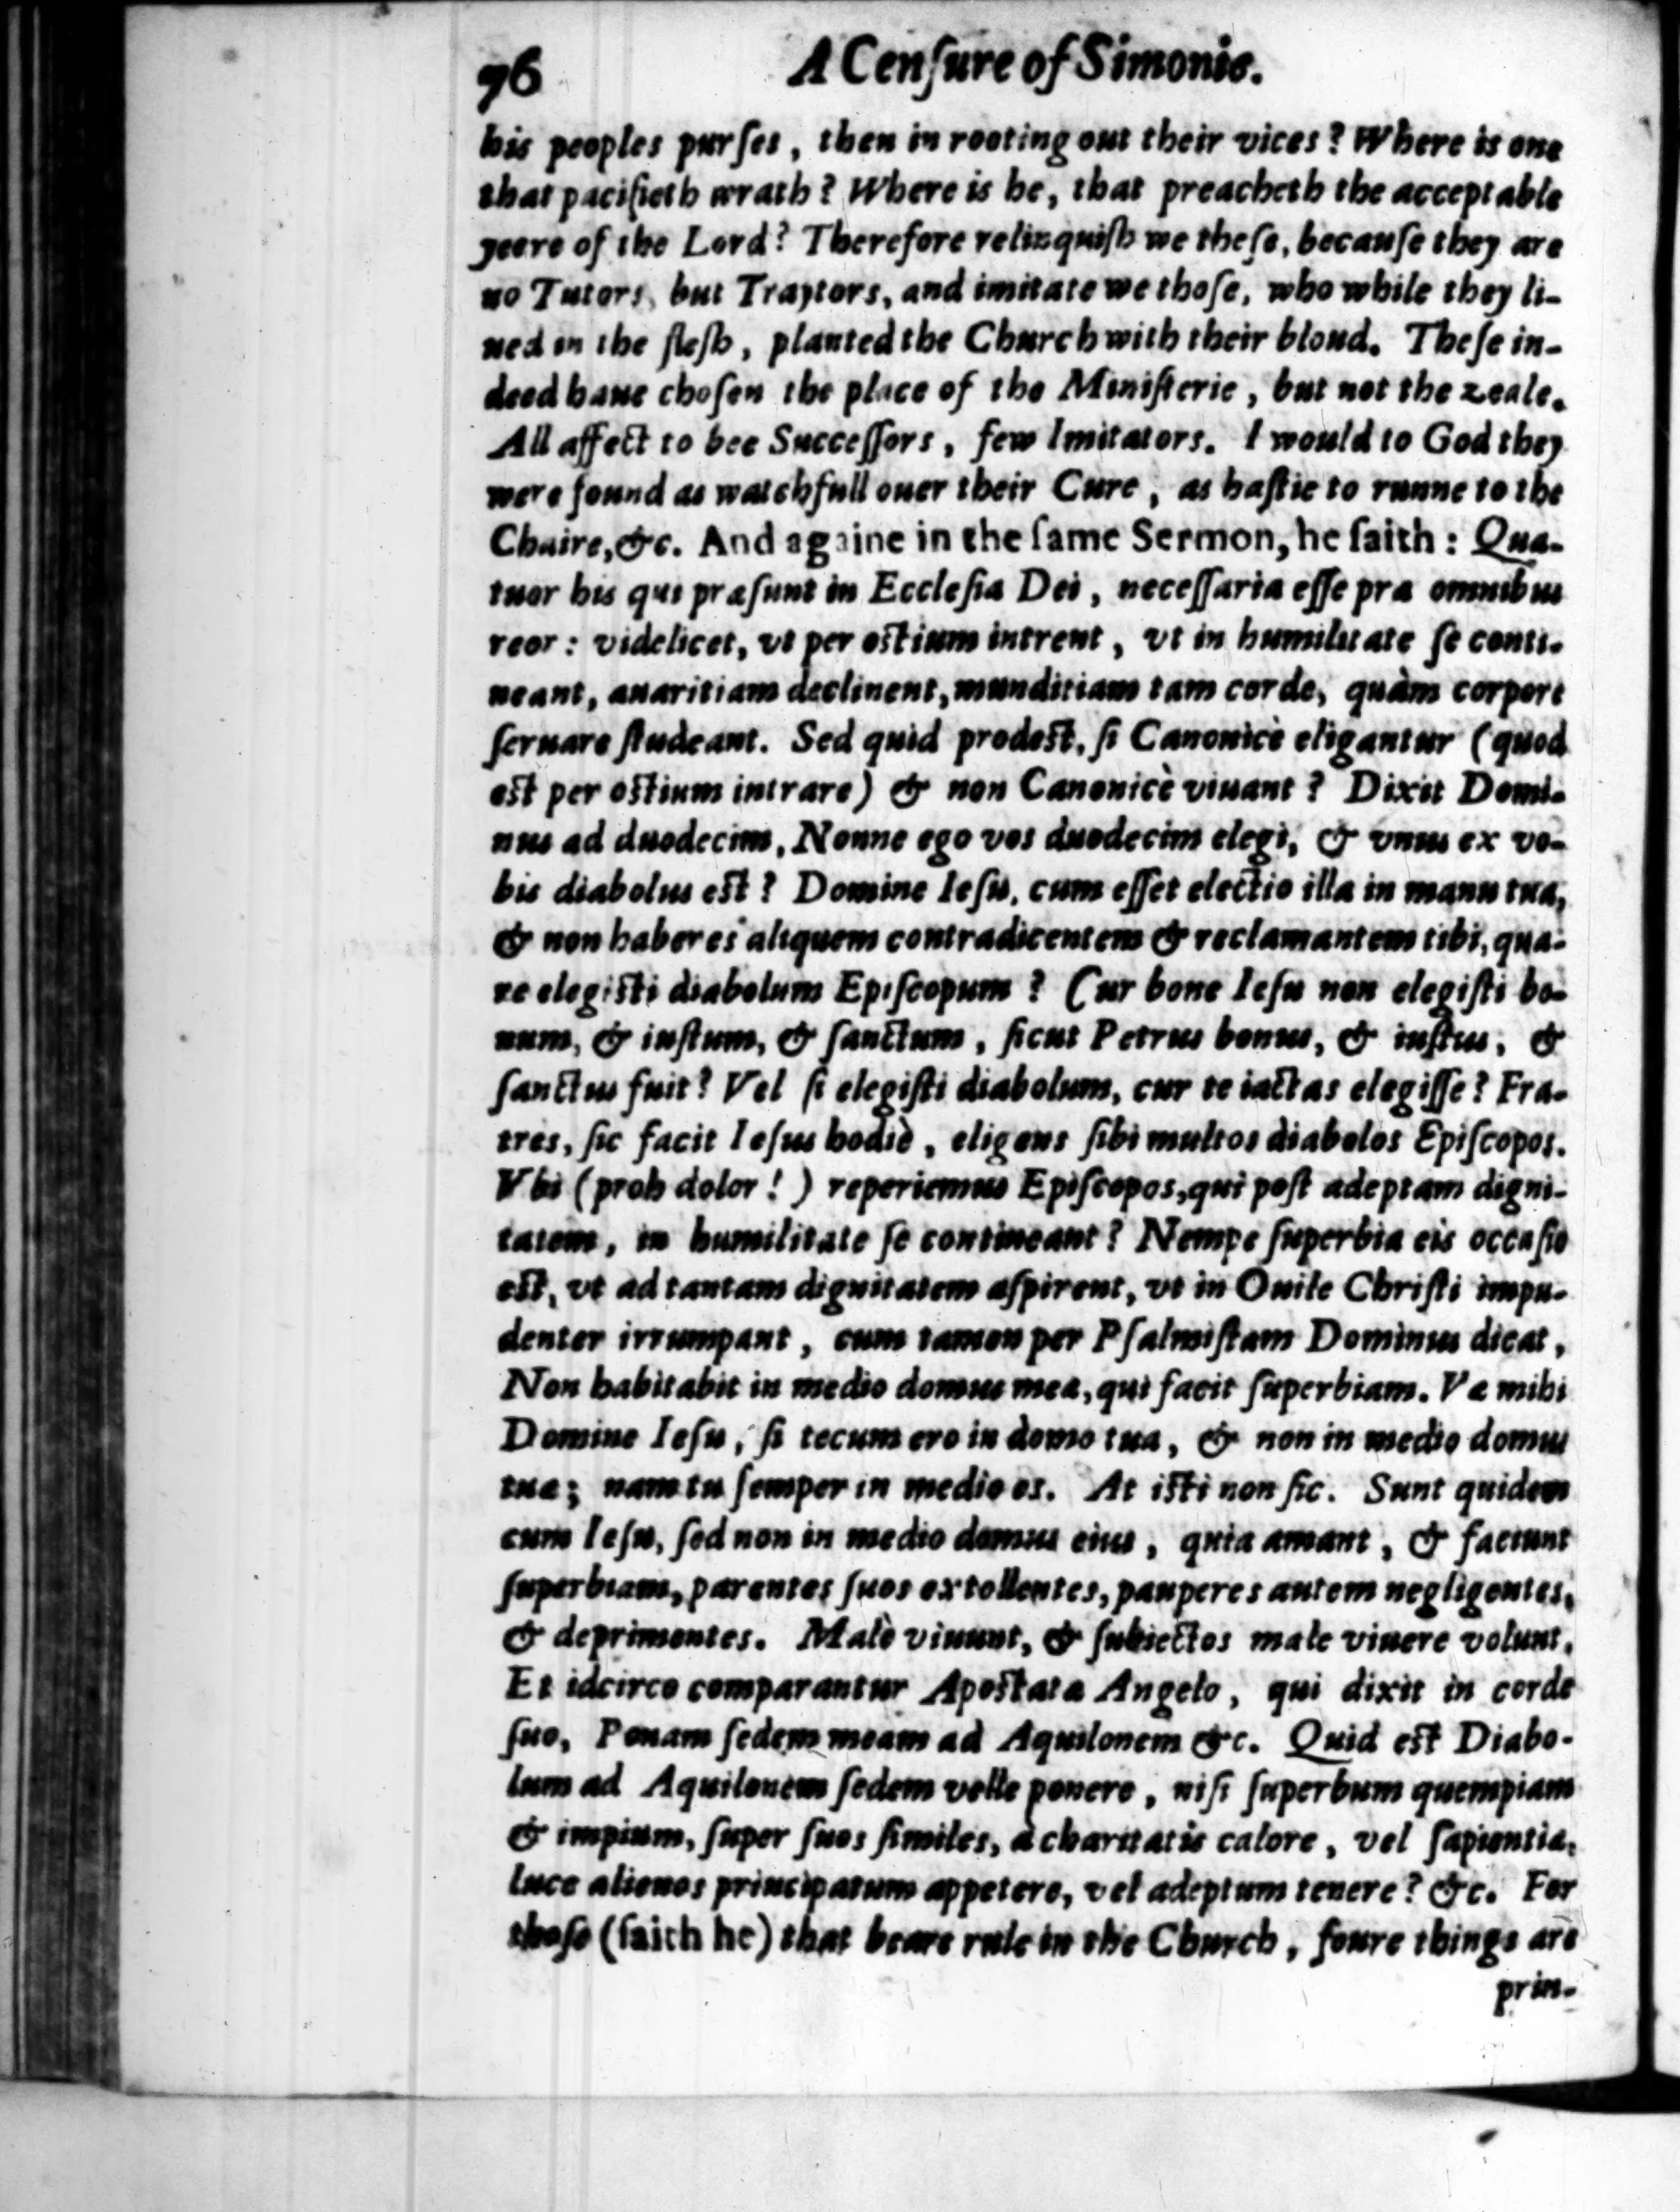 96 A Cenſure of Simonie.
his peoples purſes, then in rooting out their vices? Where is one
that pacifieth wrath? Where is he, that preacheth the acceptable
yeere of the Lord? Therefore relinquiſh we theſe, becauſe they are
no Tutors, but Traytors, and imitate we thoſe, who while they li-
ued in the fleſh, planted the Church with their bloud. Theſe in-
deed haue choſen the place of the Miniſterie, but not the zeale.
All affect to bee Succeſſors, few Imitators. I would to God they
were found as watchfull ouer their Cure, as haſtie to runne to the
Chaire, &c. And againe in the ſame Sermon, he ſaith: Qua-
tuor his qui præſunt in Eccleſia Dei, neceſſaria eſſe præ omnibus
reor: videlicet, vt per oſtium intrent, vt in humilitate ſe conti-
neant, auaritiam declinent, munditiam tam corde, quàm corpore
ſeruare ſtudeant. Sed quid prodeſt, ſi Canonicè eligantur (quod
eſt per oſtium intrare) & non Canonicè viuant? Dixit Domi-
nus ad duodecim, Nonne ego vos duodecim elegi, & vnus ex vo-
bis diabolus eſt? Domine Ieſu, cum eſſet electio illa in manu tua,
& non haberes aliquem contradicentem & reclamantem tibi, qua-
re elegiſti diabolum Epiſcopum? Cur bone Ieſu non elegiſti bo-
num, & iuſtum, & ſanctum, ſicut Petrus bonus, & iuſtus, &
ſanctus fuit? Vel ſi elegiſti diabolum, cur te iactas elegiſſe? Fra-
tres, ſic facit Ieſus hodiè, eligens ſibi multos diabolos Epiſcopos.
Vbi (proh dolor!) reperiemus Epiſcopos, qui poſt adeptam digni-
tatem, in humilitate ſe contineant? Nempe ſuperbia eis occaſio
eſt, vt ad tantam dignitatem aſpirent, vt in Ouile Chriſti impu-
denter irrumpant, cum tamen per Pſalmiſtam Dominus dicat,
Non habitabit in medio domus meæ, qui facit ſuperbiam. Væ mihi
Domine Ieſu, ſi tecum ero in domo tua, & non in medio domus
tuæ; nam tu ſemper in medio es. At iſti non ſic. Sunt quidem
cum Ieſu, ſed non in medio domus eius, quia amant, & faciunt
ſuperbiam, parentes ſuos extollentes, pauperes autem negligentes,
& deprimentes. Malè viuunt, & ſubiectos male viuere volunt.
Et idcirco comparantur Apoſtatæ Angelo, qui dixit in corde
ſuo, Ponam ſedem meam ad Aquilonem &c. Quid eſt Diabo-
lum ad Aquilonem ſedem velle ponere, niſi ſuperbum quempiam
& impium, ſuper ſuos ſimiles, à charitatis calore, vel ſapientiæ,
luce alienos principatum appetere, vel adeptum tenere? &c. For
thoſe (ſaith he) that beare rule in the Church, foure things are
prin-